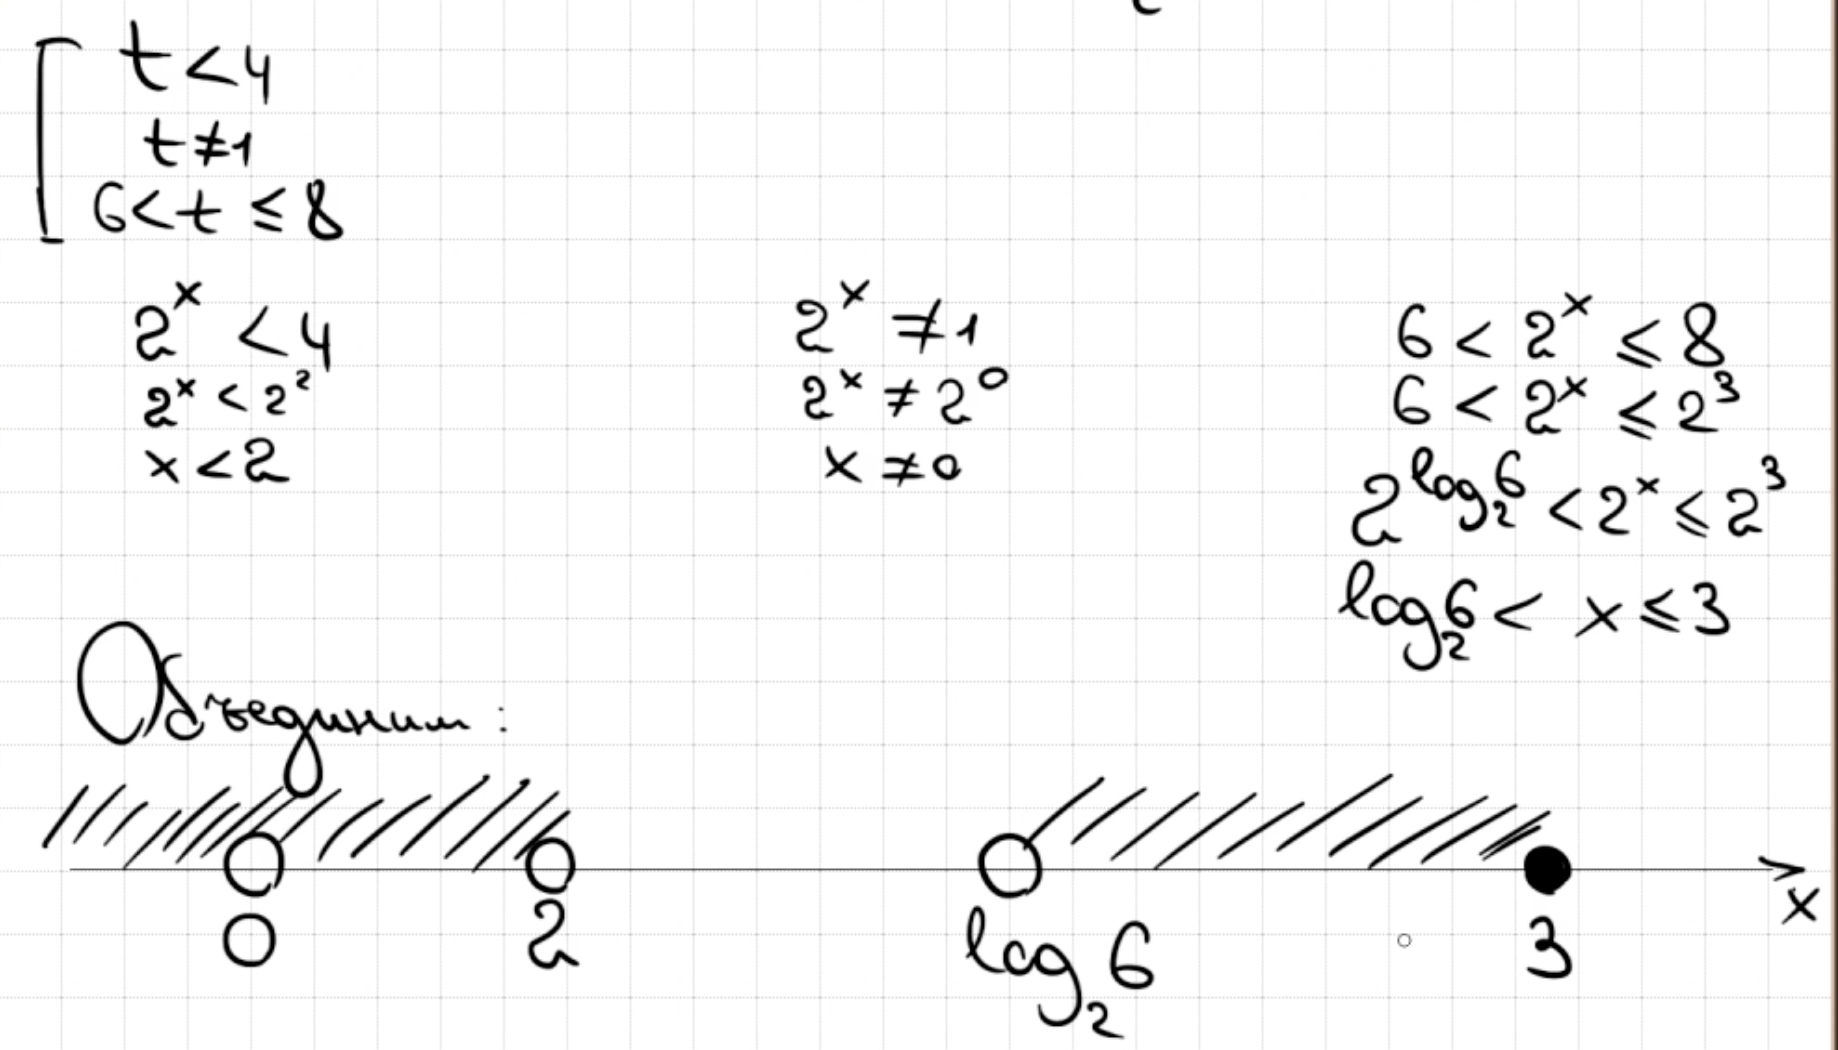 t < 4
t ≠ 1
6 < t ≤ 8
2^x < 4
2^x < 2^2
x < 2
2^x ≠ 1
2^x ≠ 2^0
x ≠ 0
6 < 2^x ≤ 8
6 < 2^x ≤ 2^3
2^{log_2 6} < 2^x ≤ 2^3
log_2 6 < x ≤ 3
Объединим:
0 2 log_2 6 3 x